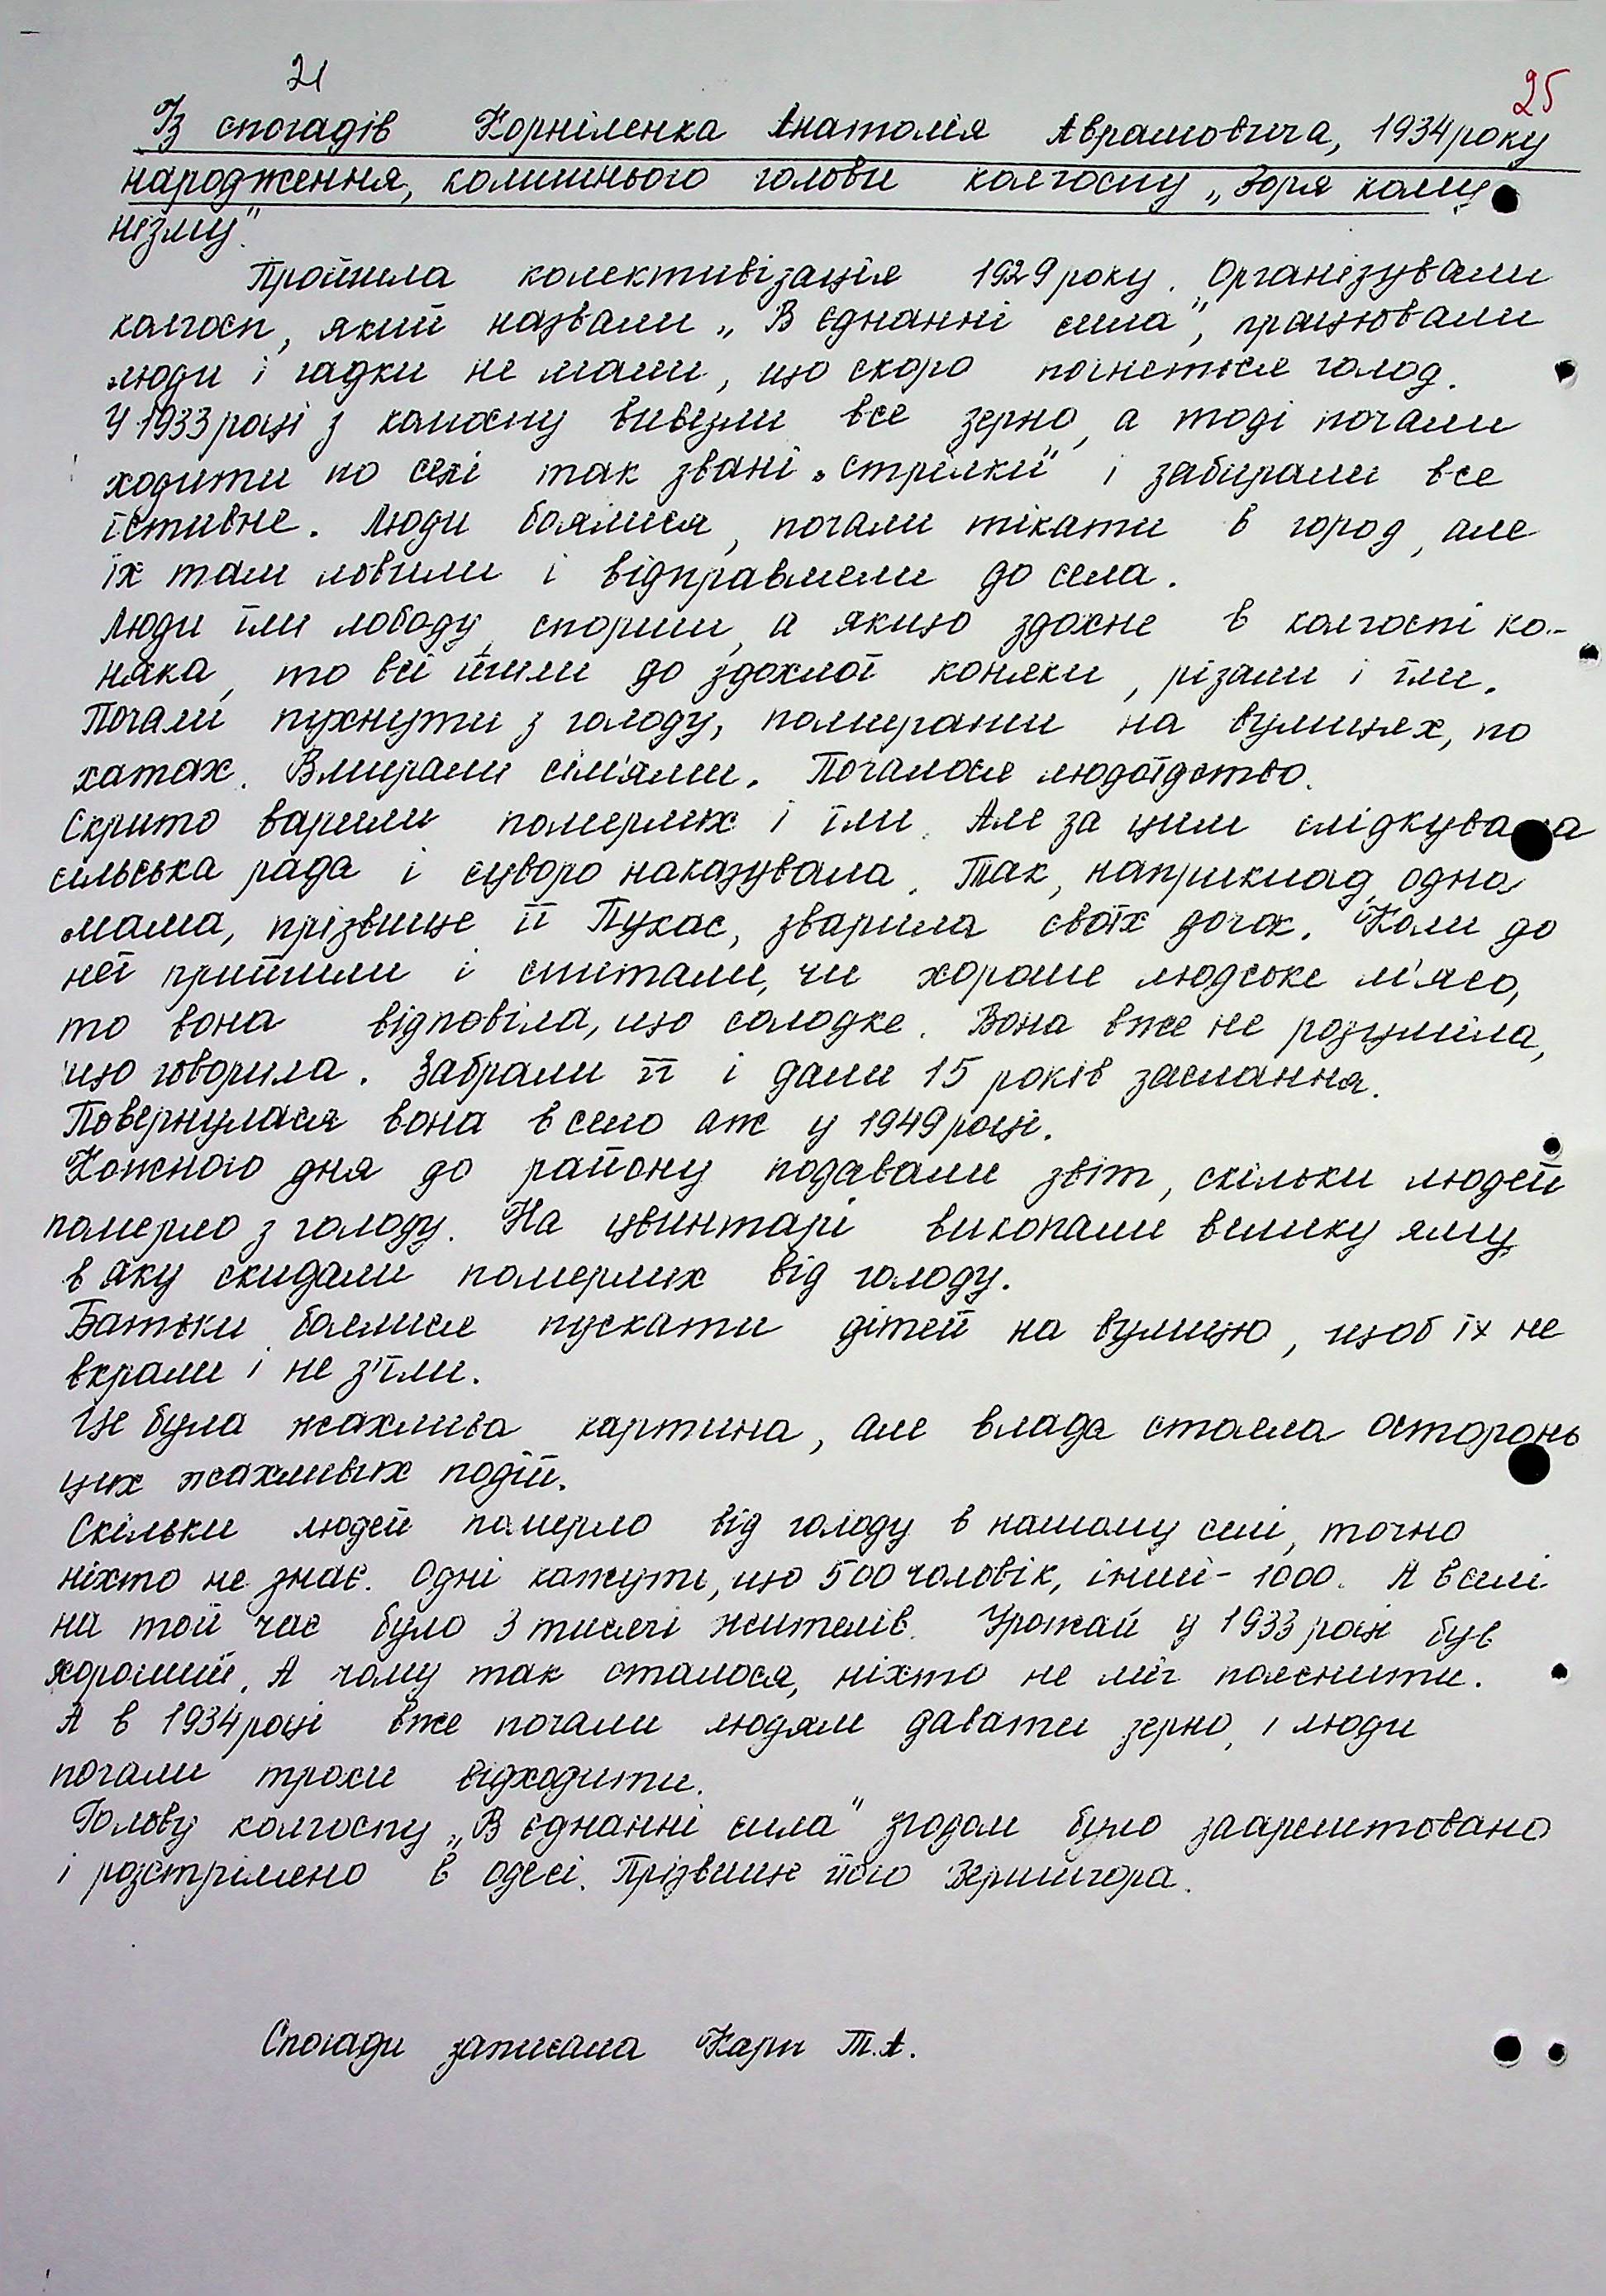 21
25
Із спогадів Корніленка Анатолія Аврамовича, 1934 року
народження, колишнього голови колгоспу „Зоря кому
нізму".
Пройшла колективізація 1929 року. Організували
колгосп, який назвали „В єднанні сила", працювали
люди і гадки не мали, що скоро почнеться голод.
У 1933 році з колгоспу вивезли все зерно, а тоді почали
ходити по селі так звані „стрілки" і забирали все
їстивне. Люди боялися, почали тікати в город, але
їх там ловили і відправляли до села.
Люди їли лободу, спориш, а якщо здохне в колгоспі ко-
няка, то всі йшли до здохлої коняки, різали і їли.
Почали пухнути з голоду, помирати на вулицях, по
хатах. Вмирали сім'ями. Почалося людоїдство.
Скрито варили померлих і їли. Але за цим слідкувала
сільська рада і суворо наказувала. Так, наприклад, одна
мама, прізвище її Пукас, зварила своїх дочок. Коли до
неї прийшли і спитали, чи хороше людське м'ясо,
то вона відповіла, що солодке. Вона вже не розуміла,
що говорила. Забрали її і дали 15 років заслання.
Повернулася вона в село аж у 1949 році.
Кожного дня до району подавали звіт, скільки людей
померло з голоду. На цвинтарі викопали велику яму,
в яку скидали померлих від голоду.
Батьки боялися пускати дітей на вулицю, щоб їх не
вкрали і не з'їли.
Це була жахлива картина, але влада стояла осторонь
цих жахливих подій.
Скільки людей померло від голоду в нашому селі, точно
ніхто не знає. Одні кажуть, що 500 чоловік, інші - 1000. А в селі
на той час було 3 тисячі жителів. Урожай у 1933 році був
хороший. А чому так сталося, ніхто не міг пояснити.
А в 1934 році вже почали людям давати зерно, і люди
почали трохи відходити.
Голову колгоспу „В єднанні сила" згодом було заарештовано
і розстріляно в Одесі. Прізвище його Вернигора.
Спогади записала Карп Т.А.